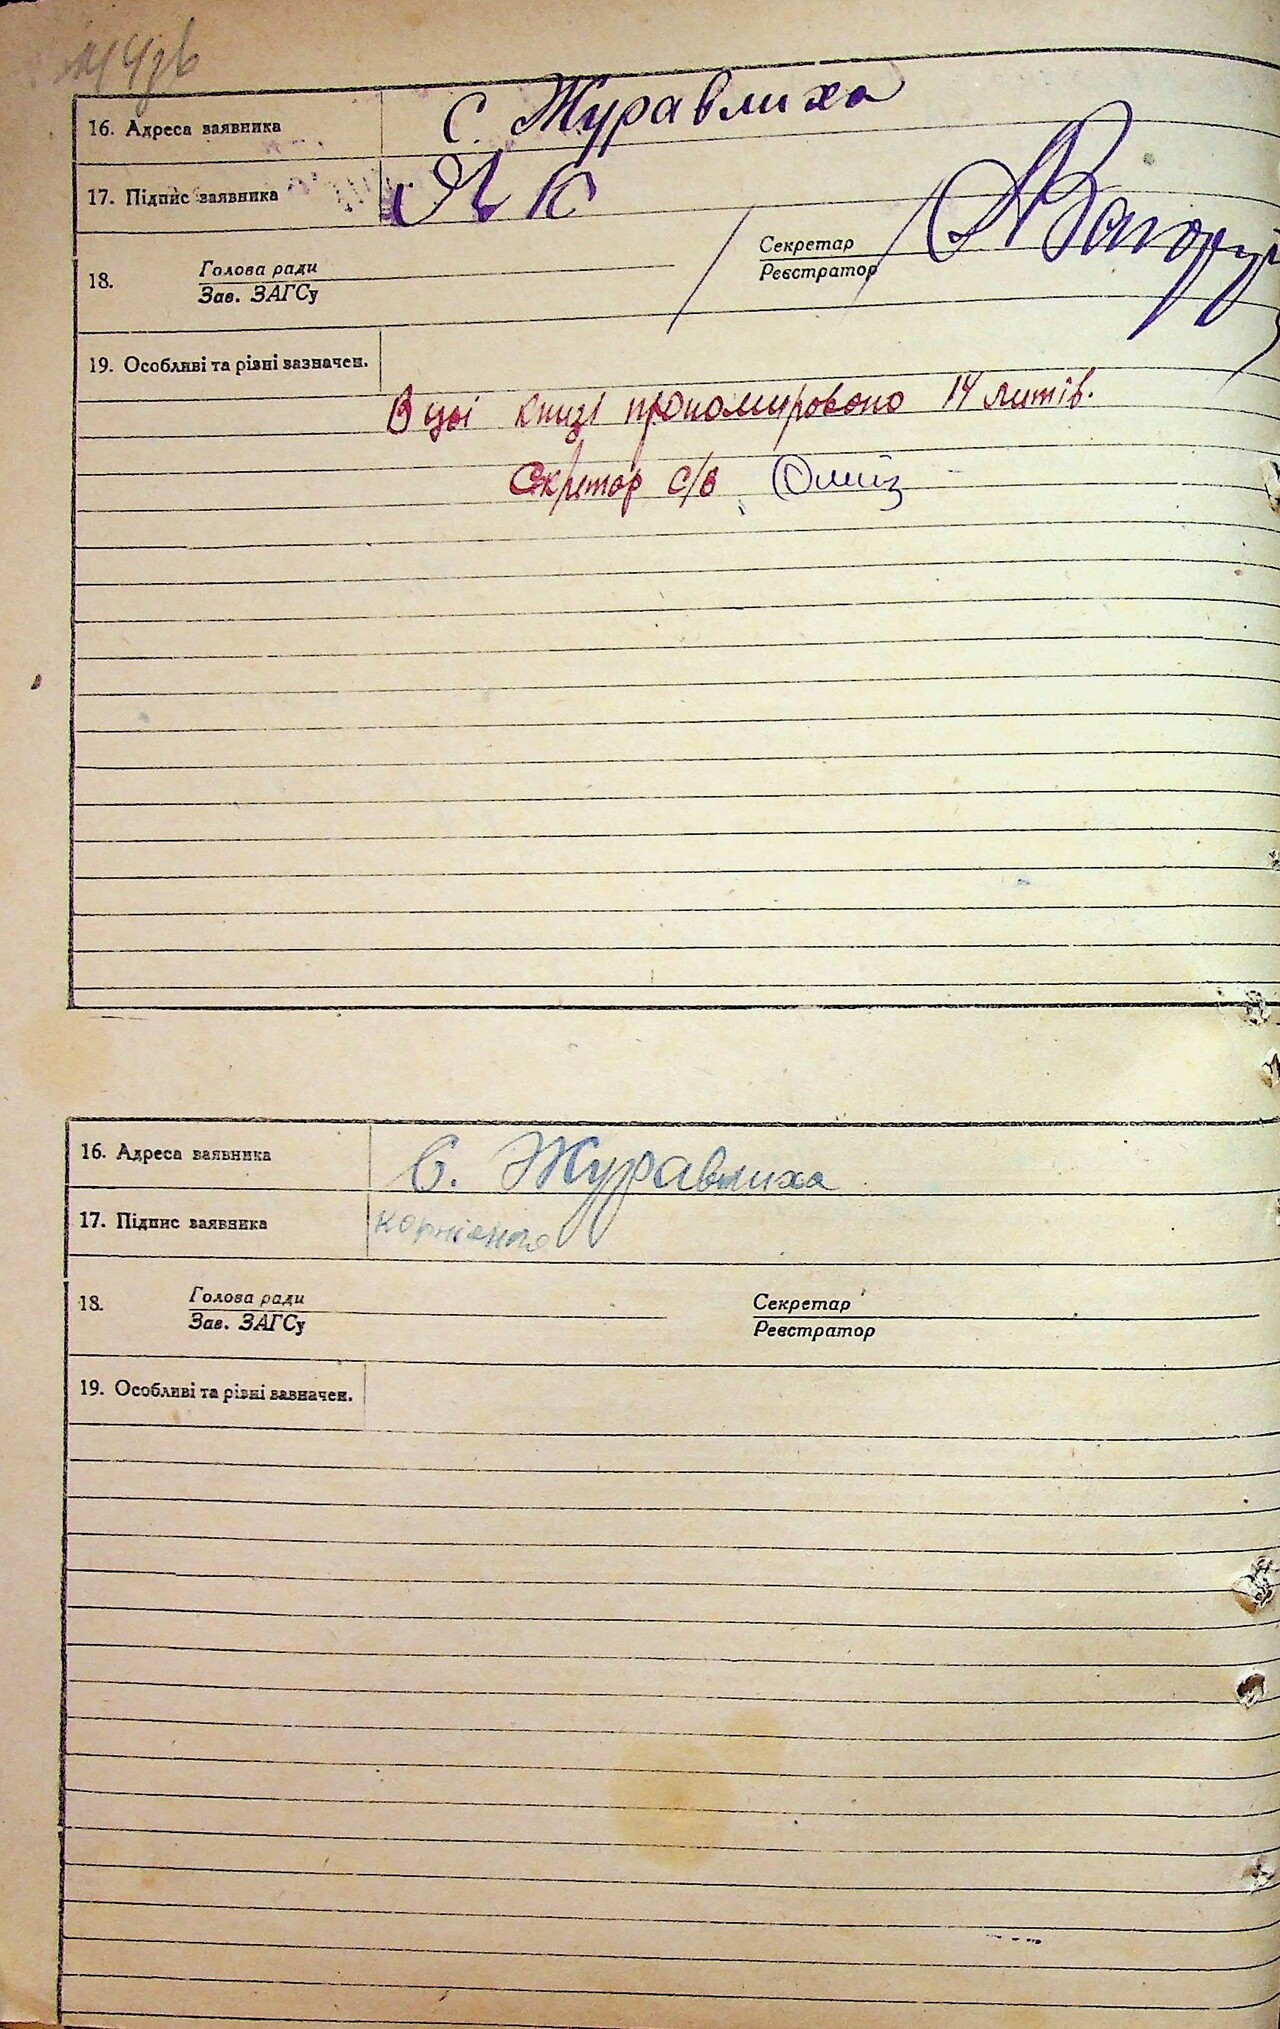 16. Адреса заявника с. Журавлиха
17. Підпис заявника
18. Голова ради Секретар
Зав. ЗАГСу Реєстратор
19. Особливі та різні зазначен.
В цеі книзі прономировоно 14 литів.
Секретар с/в
16. Адреса заявника С. Журавлиха
17. Підпис заявника корнієнко
18. Голова ради Секретар
Зав. ЗАГСу Реєстратор
19. Особливі та різні зазначен.